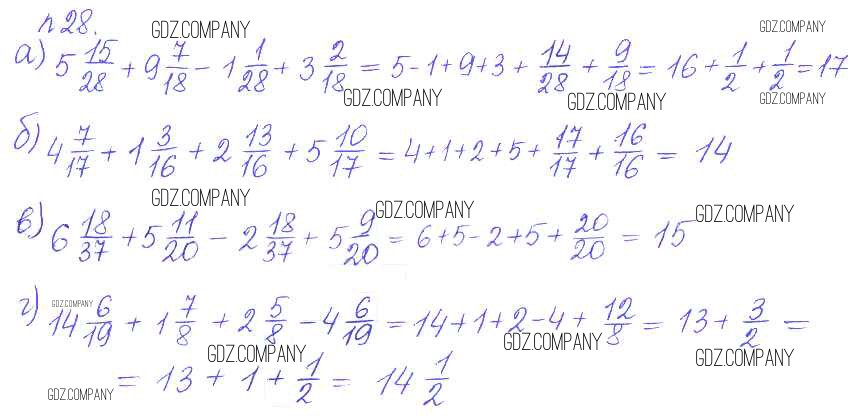 n 28.
GDZ.COMPANY
GDZ.COMPANY
а) 5 15/28 + 9 7/18 - 1 1/28 + 3 2/18 = 5-1+9+3 + 14/28 + 9/18 = 16 + 1/2 + 1/2 = 17
GDZ.COMPANY
GDZ.COMPANY
GDZ.COMPANY
б) 4 7/17 + 1 3/16 + 2 13/16 + 5 10/17 = 4+1+2+5+ 17/17 + 16/16 = 14
GDZ.COMPANY
GDZ.COMPANY
GDZ.COMPANY
в) 6 18/37 + 5 11/20 - 2 18/37 + 5 9/20 = 6+5-2+5+ 20/20 = 15
GDZ.COMPANY
г) 14 6/19 + 1 7/8 + 2 5/8 - 4 6/19 = 14+1+2-4+ 12/8 = 13 + 3/2 =
GDZ.COMPANY
GDZ.COMPANY
GDZ.COMPANY
= 13 + 1 + 1/2 = 14 1/2
GDZ.COMPANY